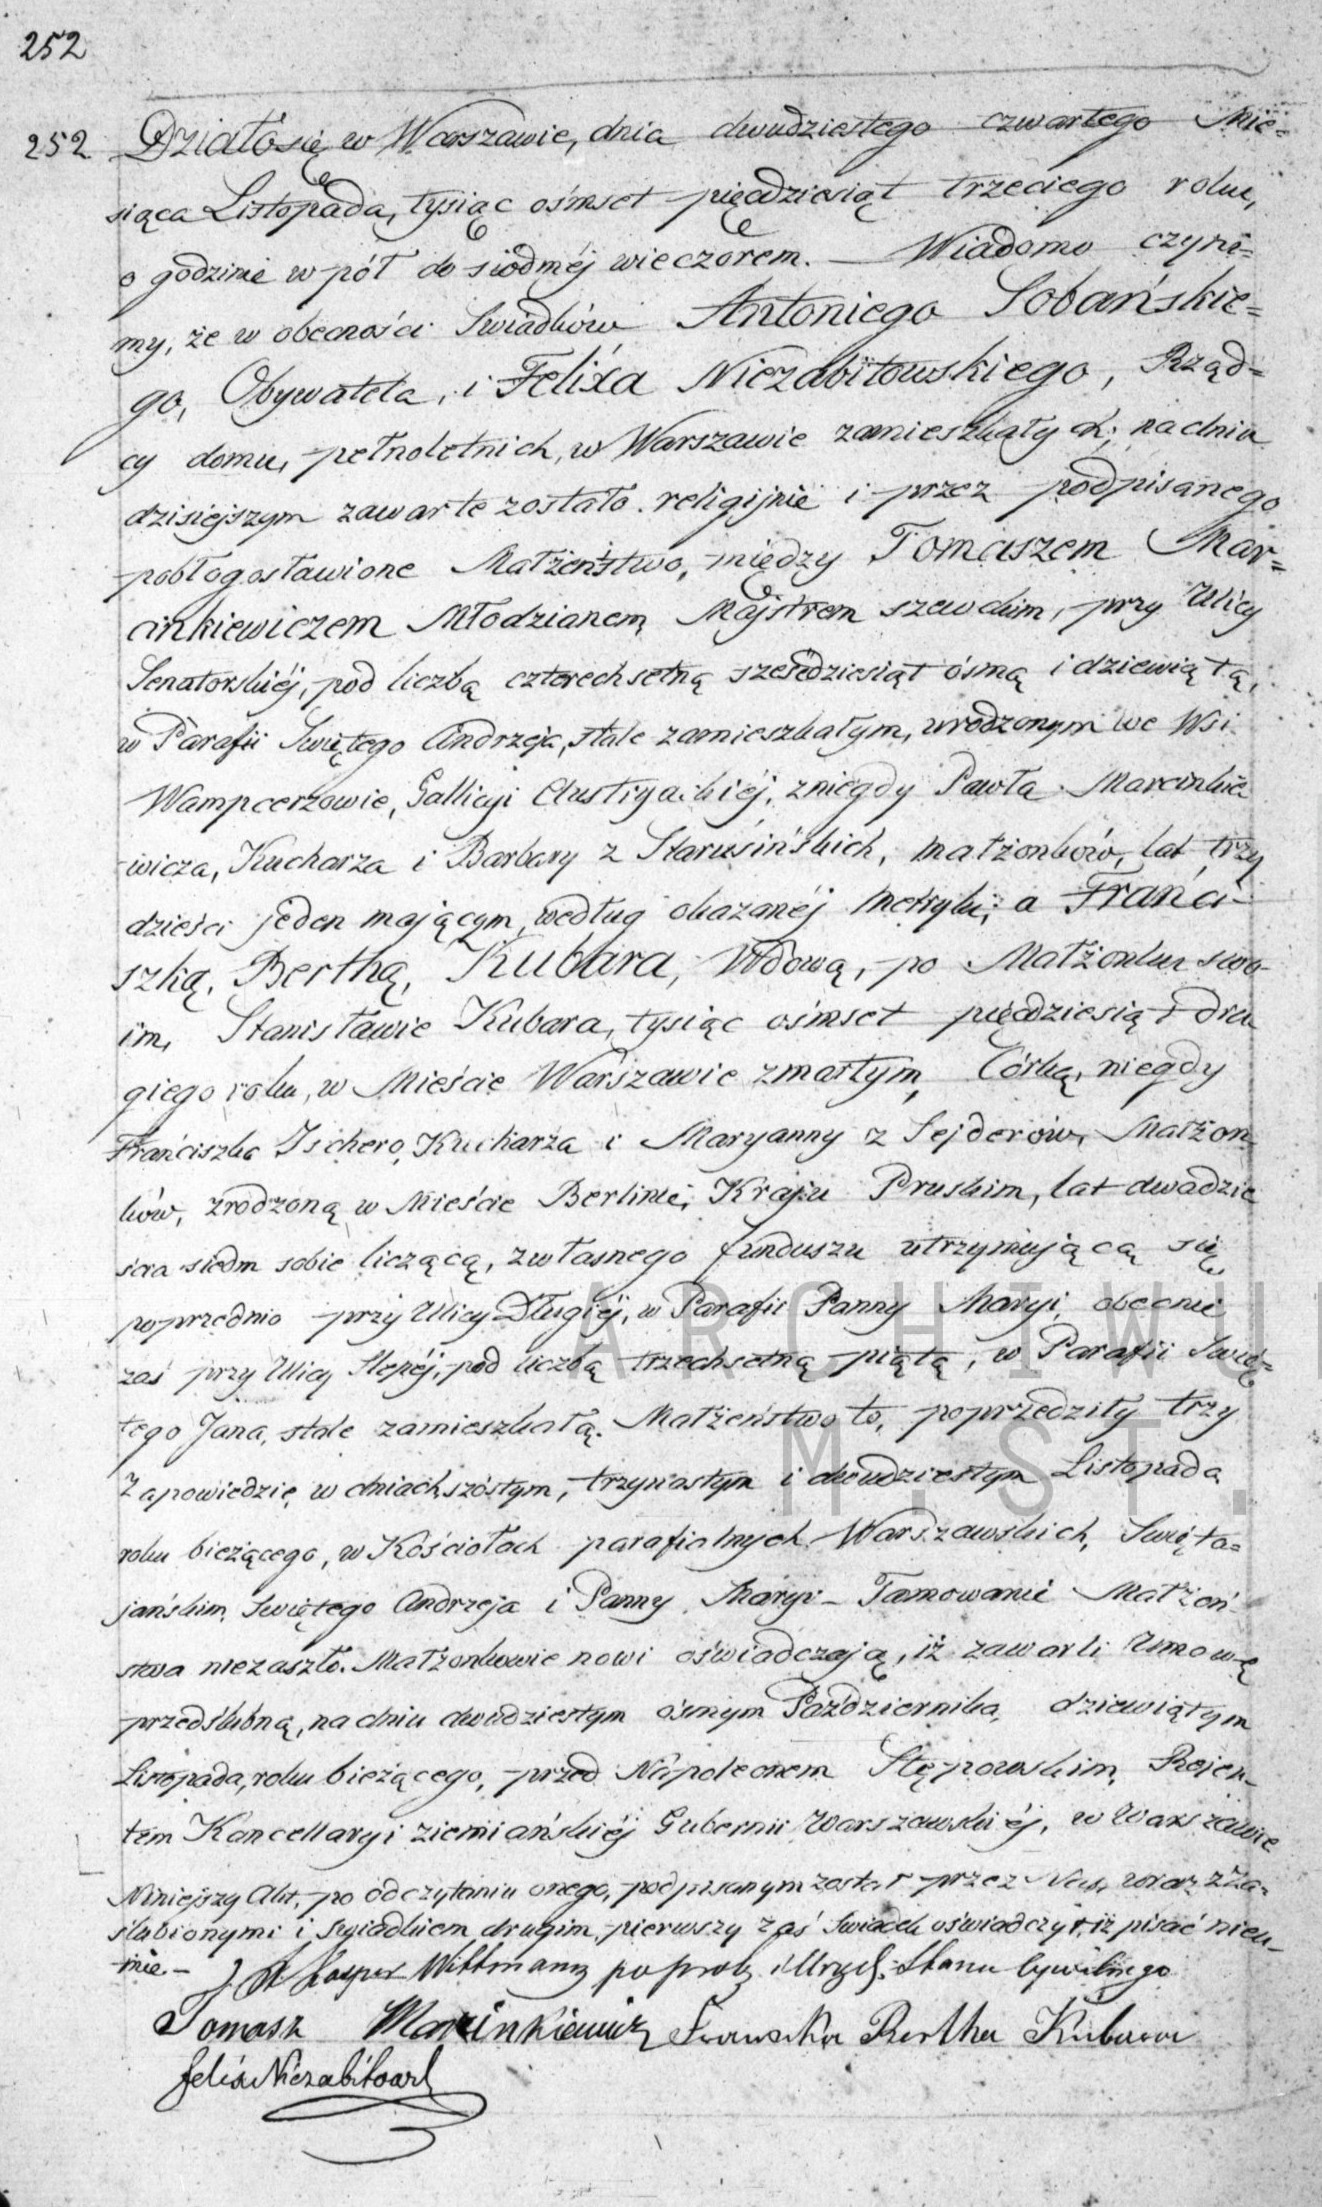 252
252 Działo się w Warszawie, dnia dwudziestego czwartego Mie=
siąca Listopada, tysiąc ośmset pięćdziesiąt trzeciego roku,
o godzinie w pół do siódméj wieczorem. — Wiadomo czyni=
my, że w obecności Swiadków Antoniego Sobańskie=
go, Obywatela, i Felixa Niezabitowskiego, Rząd=
cy domu, pełnoletnich, w Warszawie zamieszkałych; na dniu
dzisiejszym zawarte zostało religijnie i przez podpisanego
pobłogosławione Małżeństwo, między Tomaszem Mar=
cinkiewiczem Młodzianem Majstrem szewckim, przy Ulicy
Senatorskiéj, pod liczbą czterechsetną sześćdziesiąt ósmą i dziewiątą,
w Parafii Swiętego Andrzeja, stale zamieszkałym, urodzonym we Wsi
Wampcerzowie, Gallicyi Austryackiéj, z niegdy Pawła Marcinkie
wicza, Kucharza i Barbary z Starusińskich, małżonków, lat trzy
dzieści jeden mającym, według okazanéj metryki; a Franci-
szką, Berthą, Kubara, Wdową, po Małżonku swo-
im, Stanisławie Kubara, tysiąc ośmset pięćdziesiąt dru
giego roku, w Mieście Warszawie zmarłym, Córką, niegdy
Franciszka Ischero, Kucharza i Maryanny z Sejderów, Małżon
ków, zrodzoną w Mieście Berlinie, Kraju Pruskim, lat dwadzie
ścia siedm sobie liczącą, z własnego funduszu utrzymującą się
poprzednio przy Ulicy Długiéj, w Parafii Panny Maryi, obecnie
zaś przy Ulicy Slepéj, pod liczbą trzechsetną piątą, w Parafii Swię=
tego Jana, stale zamieszkałą. Małżeństwo to, poprzedziły trzy
Zapowiedzie w dniach szóstym, trzynastym i dwudziestym Listopada
roku bieżącego, w Kościołach parafialnych Warszawskich, Swięto=
jańskim, Swiętego Andrzeja i Panny Maryi – Tamowanie Małżeń-
stwa niezaszło. Małżonkowie nowi oświadczają, iż zawarli Umowę
przedślubną, na dniu dwudziestym ósmym Października, dziewiątym
Listopada, roku bieżącego, przed Napoleonem Stępowskim, Rejen-
tem Kancellaryi ziemiańskiéj Gubernii Warszawskiéj, w Warszawie
Niniejszy Akt, po odczytaniu onego, podpisanym został przez Nas, wraz z Za-
ślubionymi i swiadkiem drugim, pierwszy zaś Swiadek oświadczył, iż pisać nieu-
mie. – Kacper Wittmann po prob. i Urzęd. Stanu Cywilnego
Tomasz Marcinkiewicz Franciszka Bertha Kubara
Felix Niezabitowski
ARCHIWU
M . ST .